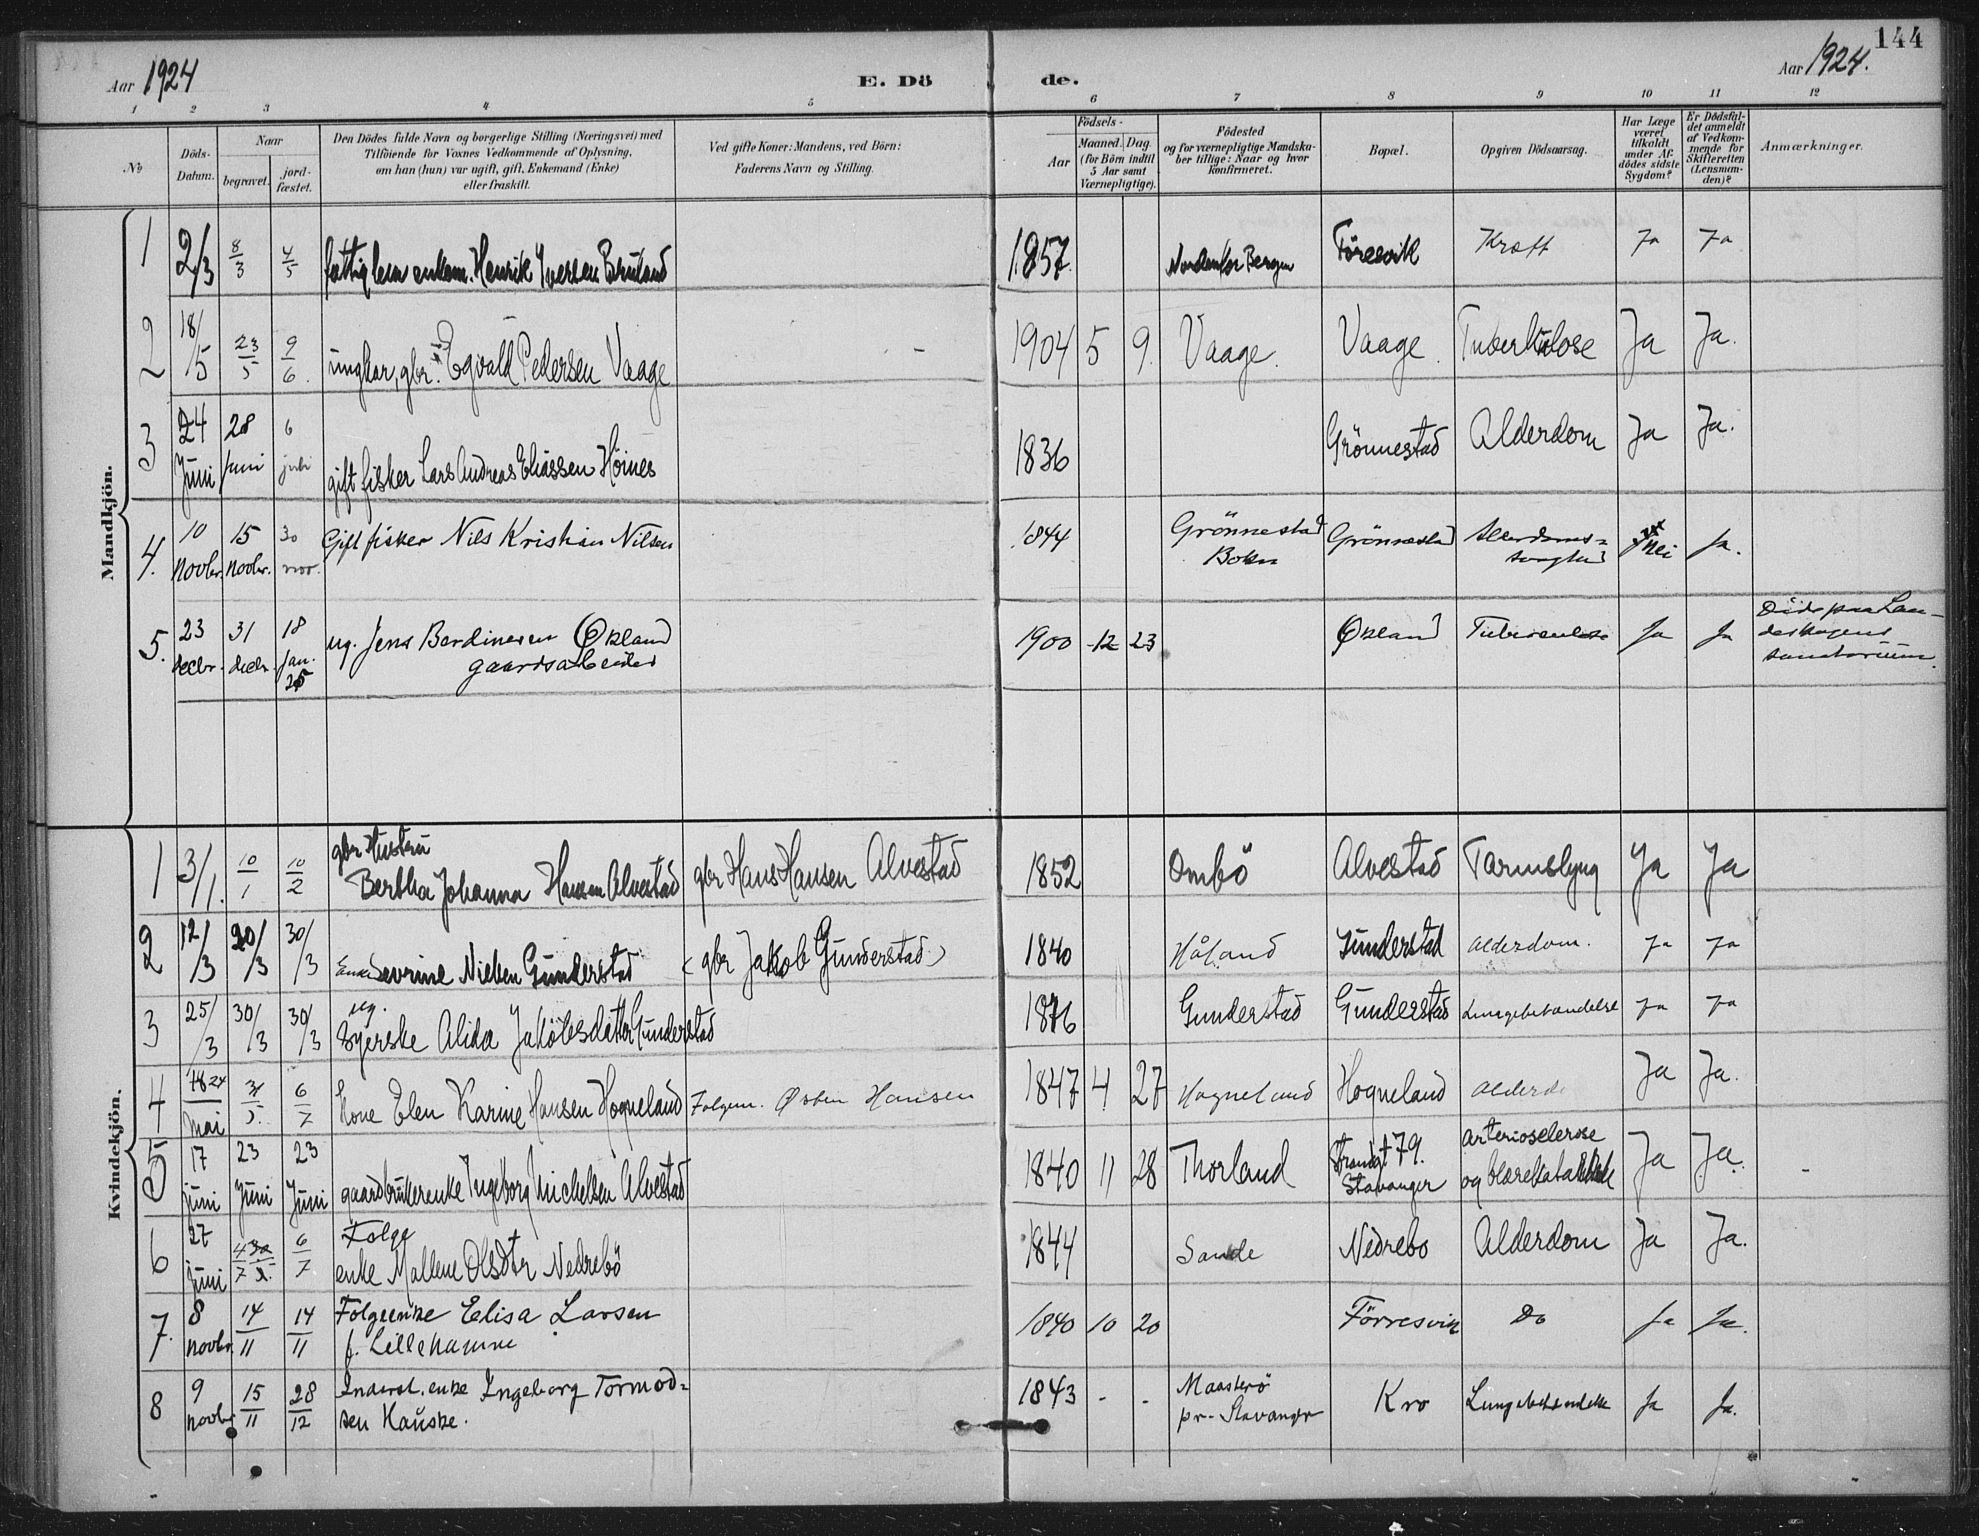 144
Aar 1924 E. Dö
de. Aar 1924.
1 2 3 4 5 6 7 8 9 10 11 12
No
Döds-Datum.
Naar
begravet.
jord-fæstet.
Den Dödes fulde Navn og borgerlige Stilling (Næringsvei) med
Tilföiende for Voxnes Vedkommende af Oplysning,
om han (hun) var ugift, gift, Enkemand (Enke)
eller fraskilt.
Ved gifte Koner: Mandens, ved Börn:
Faderens Navn og Stilling.
Födsels-
Aar
Maaned. Dag.
(for Börn indtil
5 Aar samt
Værnepligtige).
Födested
og for værnepligtige Mandska-
ber tillige: Naar og hvor
konfirmeret.
Bopæl.
Opgiven Dödsaarsag.
Har Læge
været
tilkaldt
under Af-
dödes sidste
Sygdom?
Er Dödsfal-
det anmeldt
af Vedkom-
mende for
Skifteretten
(Lensman-
den)?
Anmærkninger.
Mandkjön.
1 2/3 8/3 4/5 fattiglem enkem. Henrik Iversen Bruland 1857. Nordenfor Bergen Föresvik Kræft Ja Ja
2 18/5 23/5 9/6. ungkar, gbr. Egvald Pedersen Vaage 1904 5 9. Vaage. Vaage. Tuberkulose Ja Ja.
3 24 Juni 28 Juni 6 juli gift fisker Lars Andreas Eliassen Höines 1836 Grönnestad Alderdom Ja Ja.
4. 10 Novbr. 15 Novbr. 30 nov. Gift fisker Nils Kristian Nilsen 1844 Grönnestad Bokn Grönnestad Alderdoms= svaghed nei Ja.
5. 23 decbr. 31 decbr. 18 Jan. 25 ug. Jens Bardinesen Økland gaardsarbeider 1900 12 23 Økland Tuberculose Ja Ja Döde paa Lan-
deskogens
sanatorium.
Kvindekjön.
1 3/1. 10/1 10/2 gbr Hustru
Bertha Johanna Hansen Alvestad gbr Hans Hansen Alvestad 1852 Ombö Alvestad Tarmslyng Ja Ja
2 12/3 20/3 30/3 Enke Severine Nielsen Gunderstad (gbr Jakob Gunderstad) 1840 Håland Gunderstad Alderdom. Ja Ja
3 25/3 30/3 30/3 ug.
Syerske Alida Jakobsdatter Gunderstad 1876 Gunderstad Gunderstad Lungebetændelse Ja Ja
4 18 24 Mai 31/5. 6/7 Kone Elen Karine Hansen Hogneland Folgem. Østen Hansen 1847 4 27 Hogneland Hogneland Alderd Ja Ja.
5 17 Juni 23 Juni 23 Juni gaardbrukerenke Ingeborg Michelsen Alvestad 1840 11 28 Thorland Strandgt 79.
Stavanger Arteriosclerose
og blærekatarrh Ja Ja.
6 27 Juni 4/7 6/7 Folge
enke Mallene Olsdtr Nedrebö 1844 Sande Nedrebo Alderdom Ja Ja.
7. 8 Novbr. 14/11 14/11 Folgeenke Elisa Larsen
f. Lillehamme 1840 10 20 Förresvik Do Ja Ja.
8 9 Novbr. 15/11 28/12 Inderst. enke Ingeborg Tormod=
sen Hauske. 1843 - - Maasterö
pr. Stavanger Kro Lungebetændelse Ja Ja.